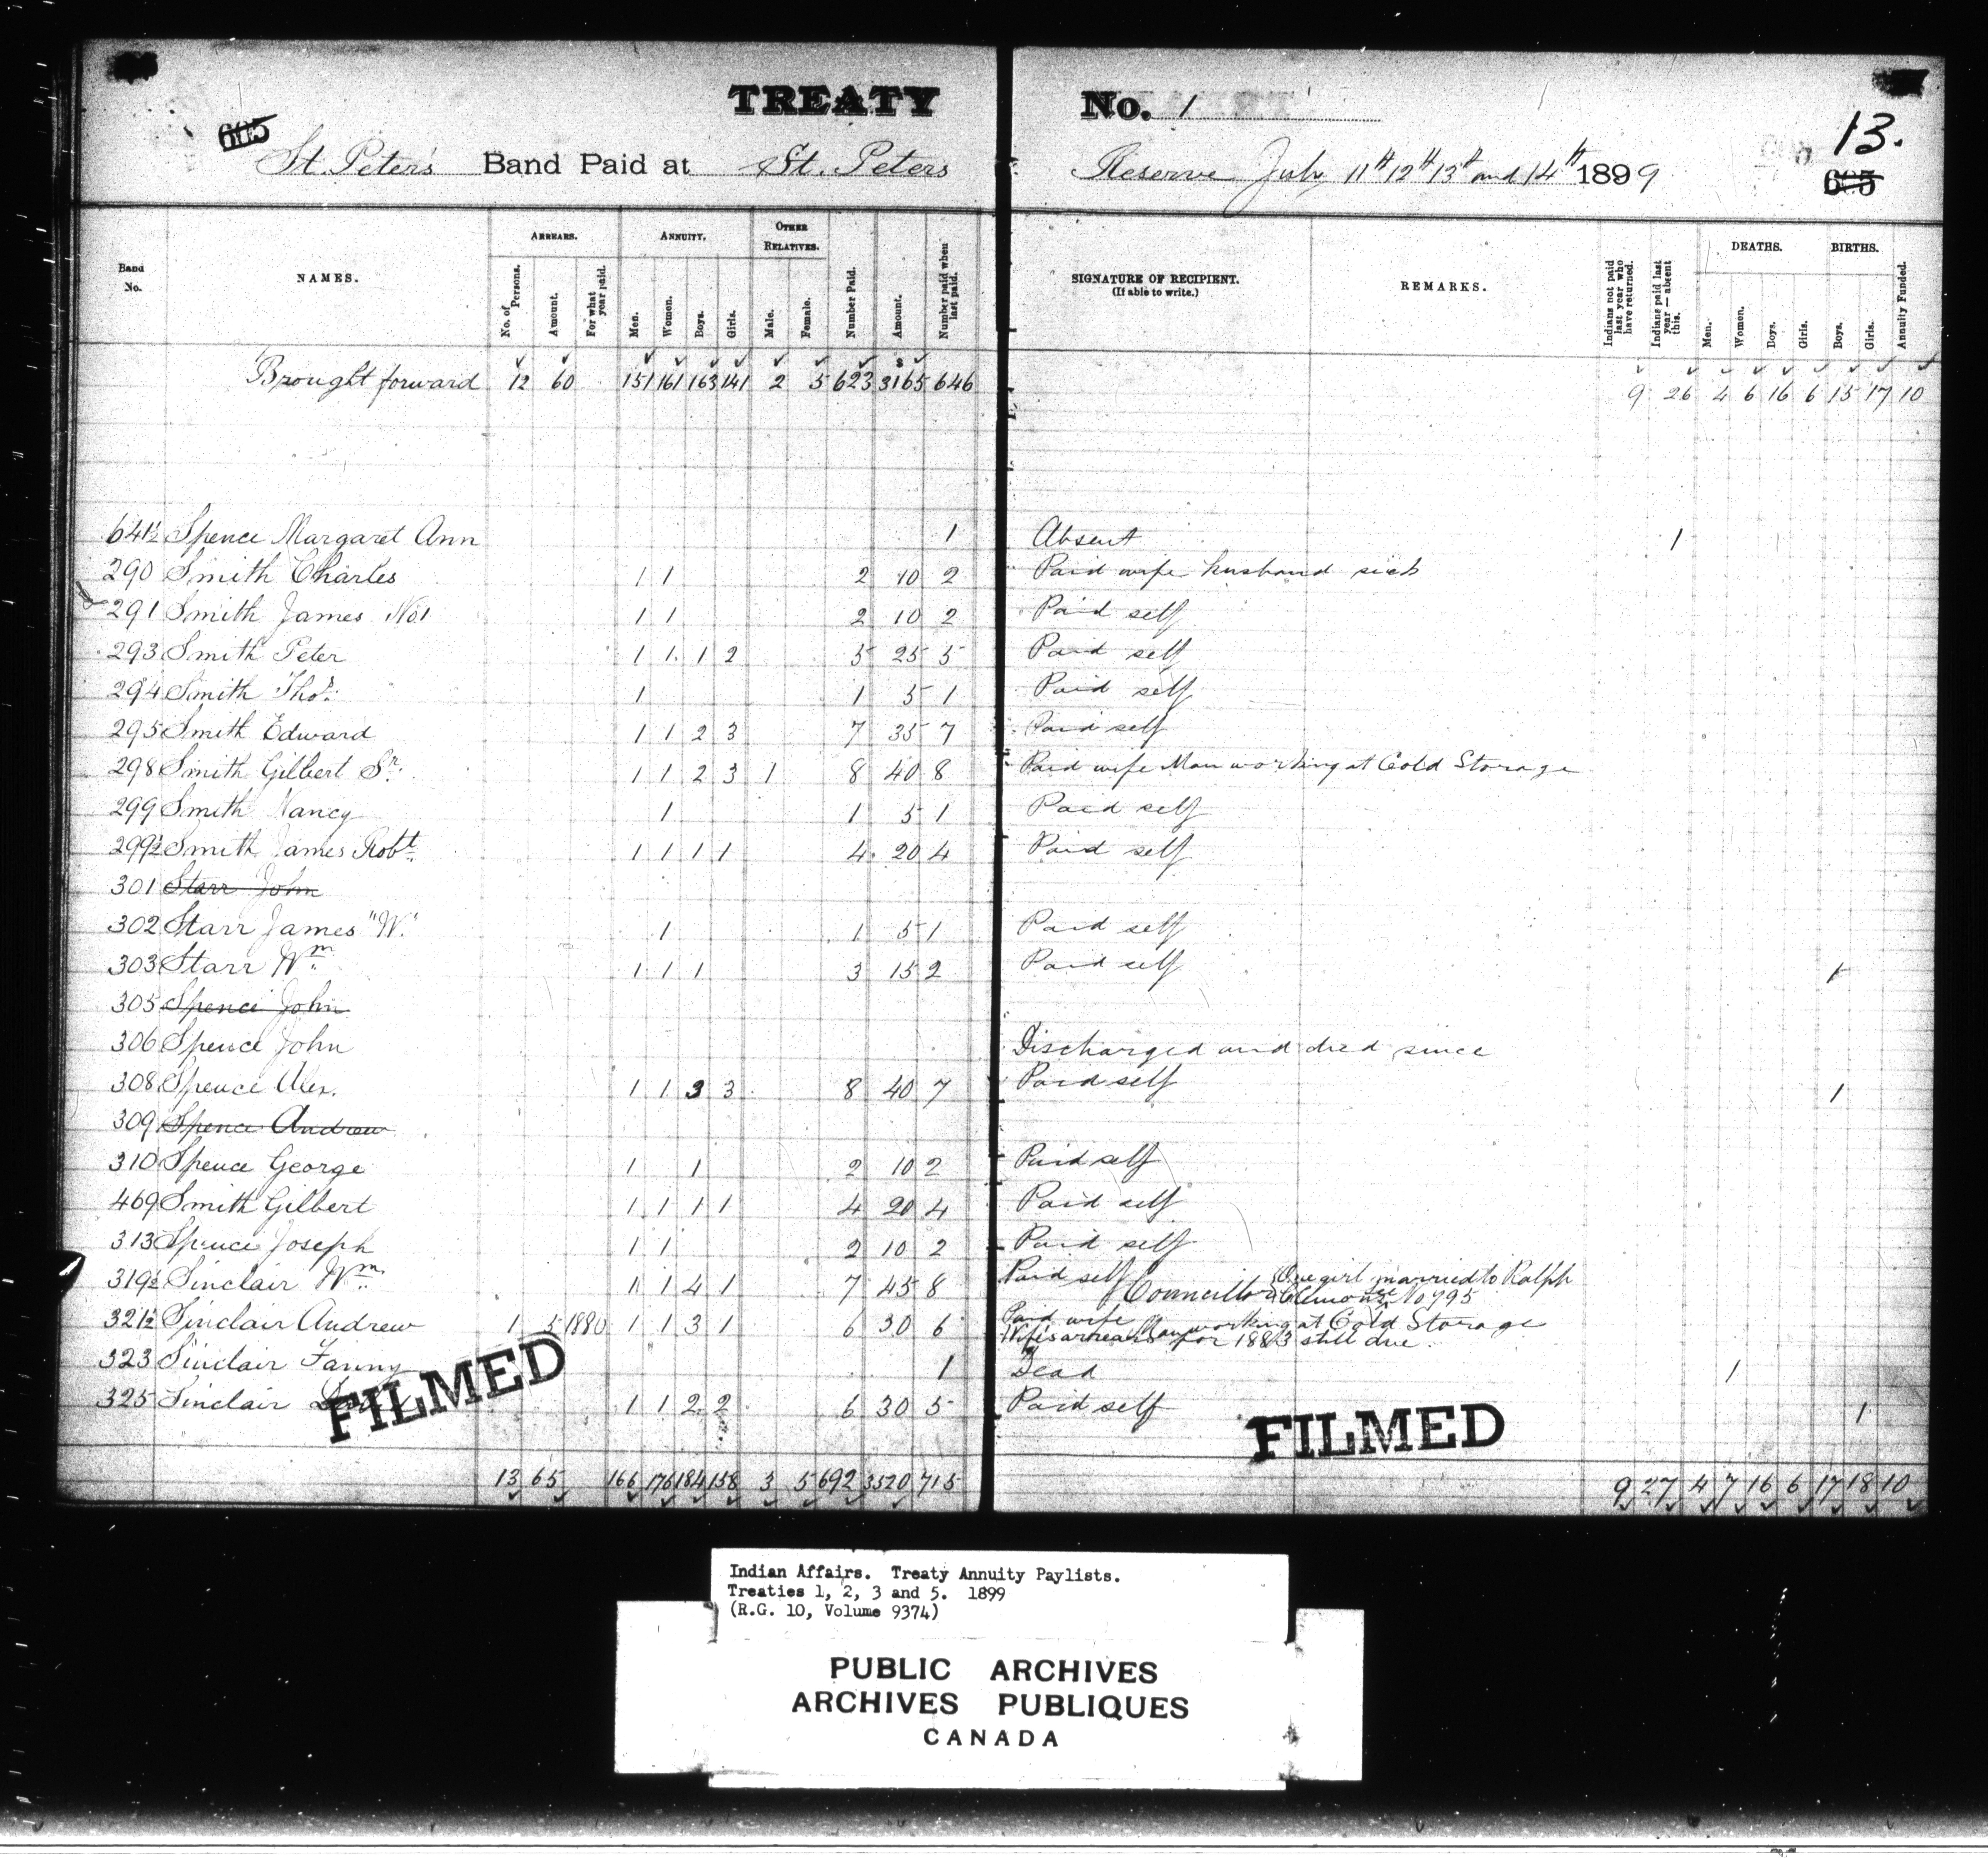 TREATY No. 1
13.
St. Peter's Band Paid at St. Peters Reserve July 11th 12th 13th and 14th 1899
Band No. NAMES. ARREARS. No. of Persons. Amount. For what year paid. ANNUITY. Men. Women. Boys. Girls. OTHER RELATIVES. Male. Female. Number Paid. Amount. Number paid when last paid. SIGNATURE OF RECIPIENT. (If able to write.) REMARKS. Indians not paid last year who have returned. Indians paid last year — absent this. DEATHS. Men. Women. Boys. Girls. BIRTHS. Boys. Girls. Annuity Funded.
Brought forward 12 60 151 161 163 141 2 5 623 $ 3165 646 9 26 4 6 16 6 15 17 10
641½ Spence Margaret Ann 1 Absent 1
290 Smith Charles 1 1 2 10 2 Paid wife husband sick
291 Smith James No 1 1 1 2 10 2 Paid self
293 Smith Peter 1 1 1 2 5 25 5 Paid self
294 Smith Thos. 1 1 5 1 Paid self
295 Smith Edward 1 1 2 3 7 35 7 Paid self
298 Smith Gilbert Sr. 1 1 2 3 1 8 40 8 Paid wife Man working at Cold Storage
299 Smith Nancy 1 1 5 1 Paid self
299½ Smith James Robt. 1 1 1 1 4 20 4 Paid self
301 Starr John
302 Starr James "W." 1 1 5 1 Paid self
303 Starr Wm. 1 1 1 3 15 2 Paid self 1
305 Spence John
306 Spence John Discharged and died since
308 Spence Alex. 1 1 3 3 8 40 7 Paid self 1
309 Spence Andrew
310 Spence George 1 1 2 10 2 Paid self
469 Smith Gilbert 1 1 1 1 4 20 4 Paid self
313 Spence Joseph 1 1 2 10 2 Paid self
319½ Sinclair Wm. 1 1 4 1 7 45 8 Paid self Councillor One girl married to Ralph
No 795
321½ Sinclair Andrew 1 5 1880 1 1 3 1 6 30 6 Paid wife Man working at Cold Storage
Wife's arrears for 1883 still due.
323 Sinclair Fanny 1 Dead 1
325 Sinclair 1 1 2 2 6 30 5 Paid self 1
FILMED FILMED
13 65 166 176 184 158 3 5 692 3520 715 9 27 4 7 16 6 17 18 10
Indian Affairs. Treaty Annuity Paylists.
Treaties 1, 2, 3 and 5. 1899
(R.G. 10, Volume 9374)
PUBLIC ARCHIVES
ARCHIVES PUBLIQUES
CANADA